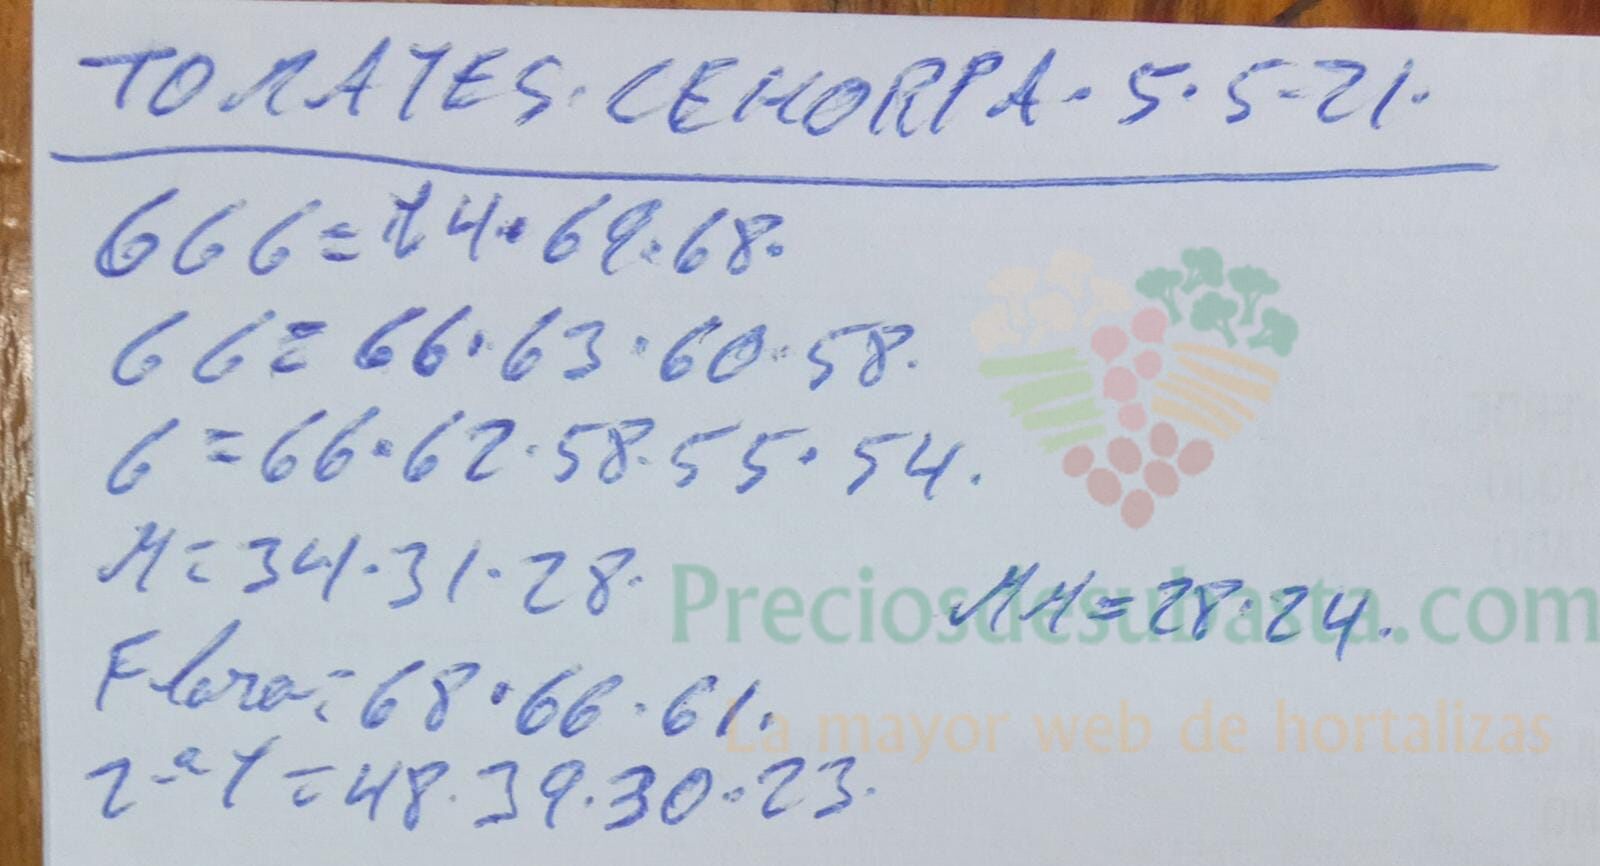 TOMATES. CEHORPA. 5.5-21.
GGG = 74.69.68.
GG = 66.63.60.58.
G = 66.62.58.55.54.
M = 34.31.28.
MM = 28.24.
Preciosdesubasta.com
Flora = 68.66.61.
La mayor web de hortalizas
2-ª Y = 48.39.30.23.